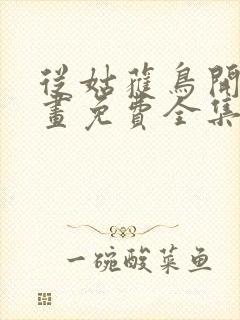 從姑蓷鳥開
畫免費全集
一碗酸菜鱼